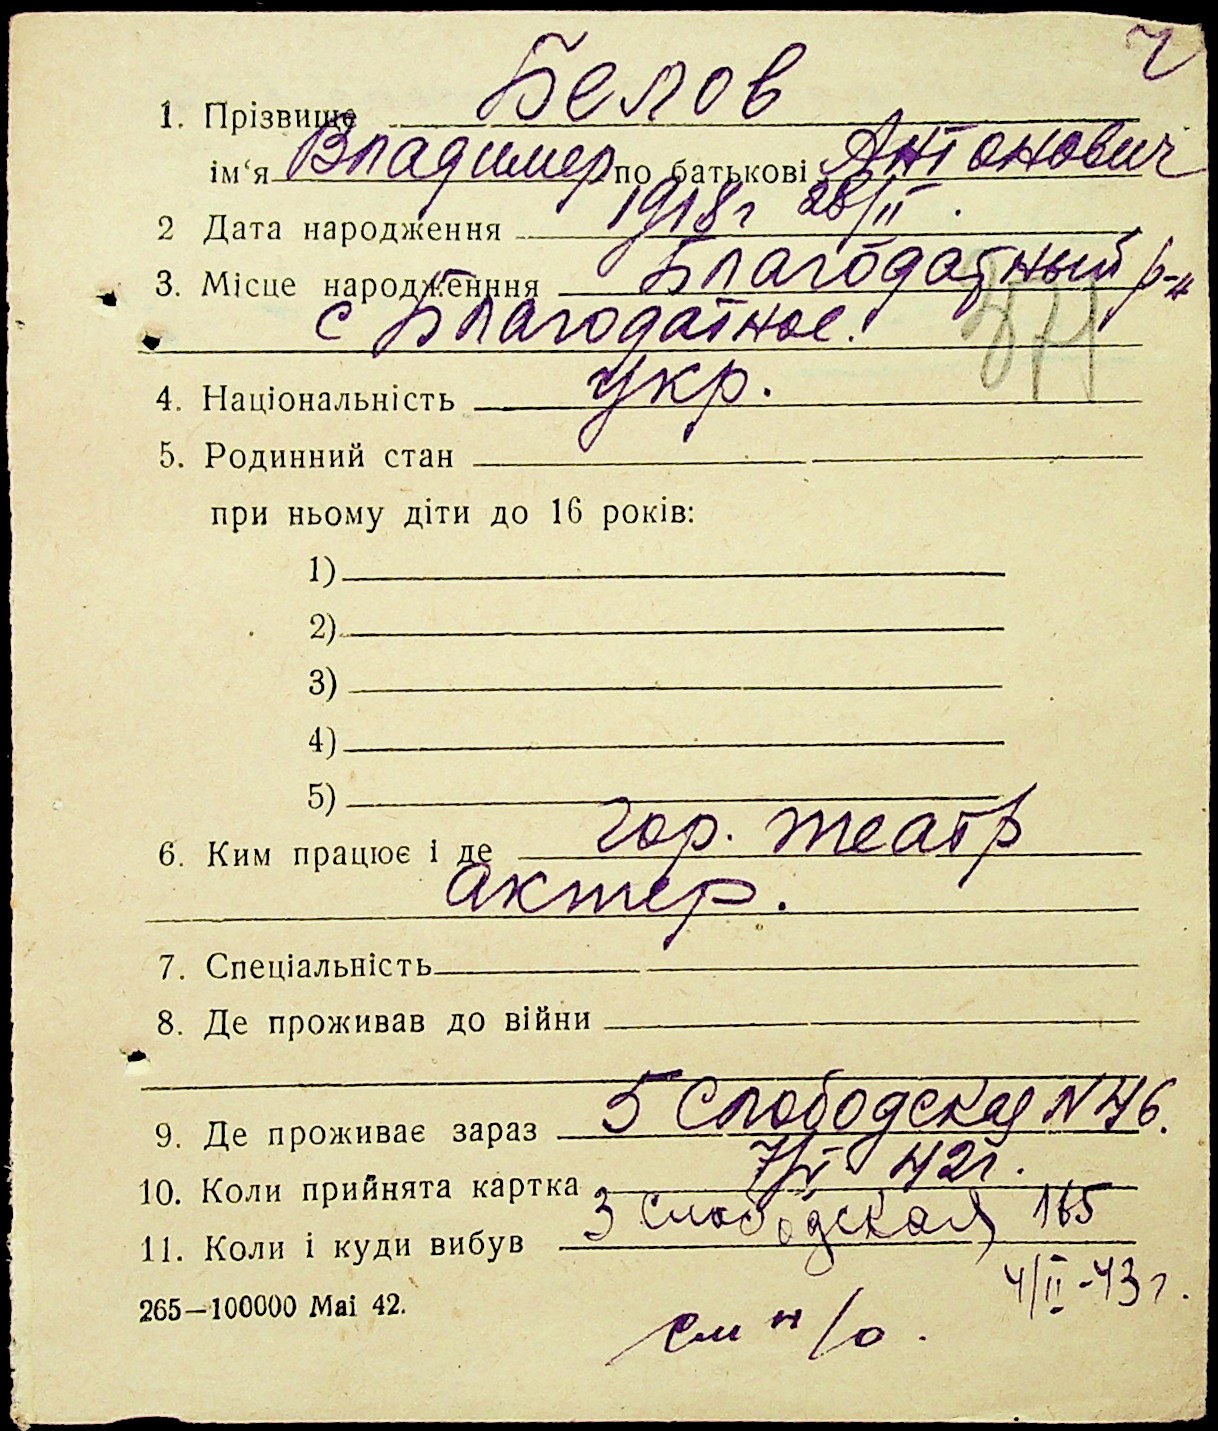 Ч
1. Прізвище Белов
ім‘я Владимер по батькові Антонович
2 Дата народження 1918 г 28/II.
3. Місце народженння Благодатный р-н
с Благодатное.
4. Національність укр.
5. Родинний стан
при ньому діти до 16 років:
1)
2)
3)
4)
5)
6. Ким працює і де гор. театр
актер.
7. Спеціальність
8. Де проживав до війни
9. Де проживає зараз 5 Слободская N 46.
10. Коли прийнята картка 42г.
11. Коли і куди вибув 3 Слободская 165
4/II-43 г.
265—100000 Mai 42.
см н/о.